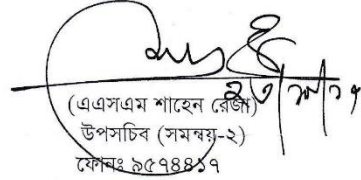 (এএসএম শাহেন রেজা)
উপসচিব (সমন্বয়-২)
ফোনঃ ৯৫৭৪৪১৭